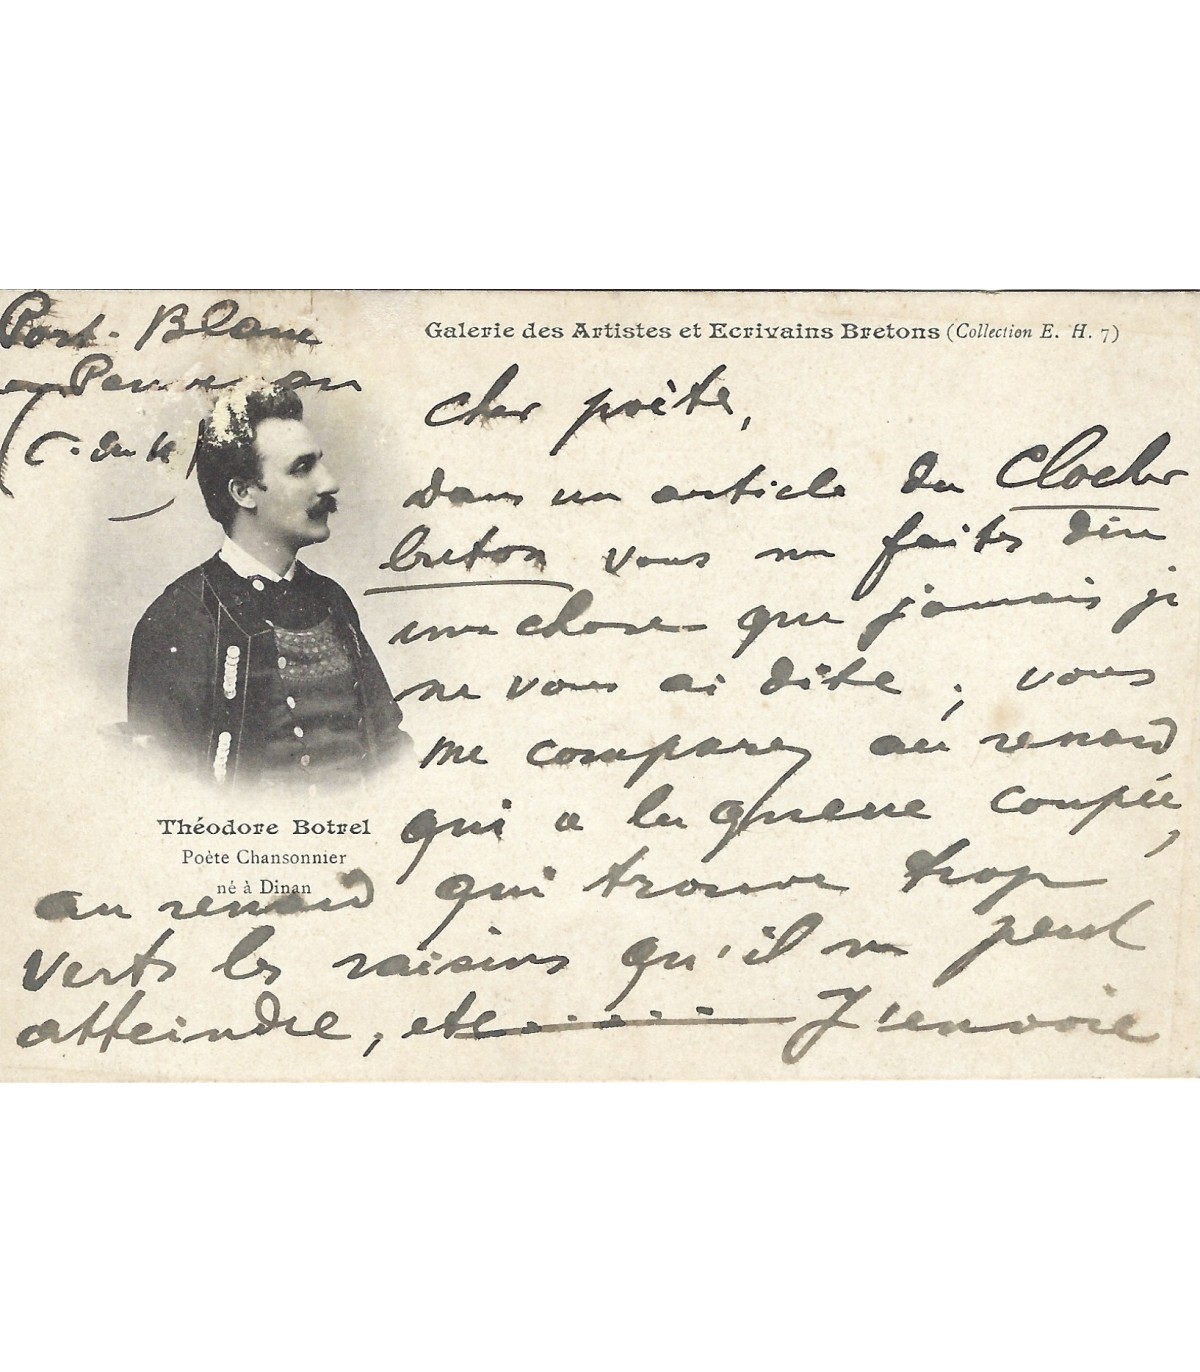 Port-Blanc
en Penvénan
(C. du N)
Galerie des Artistes et Ecrivains Bretons (Collection E. H. 7)
Cher poète,
dans un article du Clocher
breton vous me faites dire
une chose que jamais je
ne vous ai dite ; vous
me comparez au renard
qui a la queue coupée,
Théodore Botrel
Poète Chansonnier
né à Dinan
au renard qui trouve trop
verts les raisins qu'il ne peut
atteindre, etc..... J'envoie